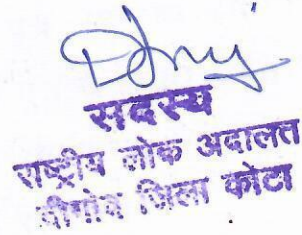 सदस्य
राष्ट्रीय लोक अदालत
जिला कोटा